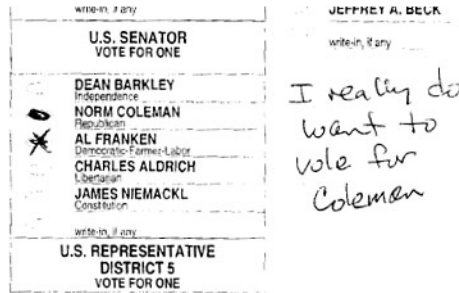 write-in, if any
U.S. SENATOR
VOTE FOR ONE
DEAN BARKLEY
Independence
NORM COLEMAN
Republican
AL FRANKEN
Democratic-Farmer-Labor
CHARLES ALDRICH
Libertarian
JAMES NIEMACKL
Constitution
write-in, if any
U.S. REPRESENTATIVE
DISTRICT 5
VOTE FOR ONE
JEFFREY A. BECK
write-in, if any
I really do
want to
vote for
Coleman